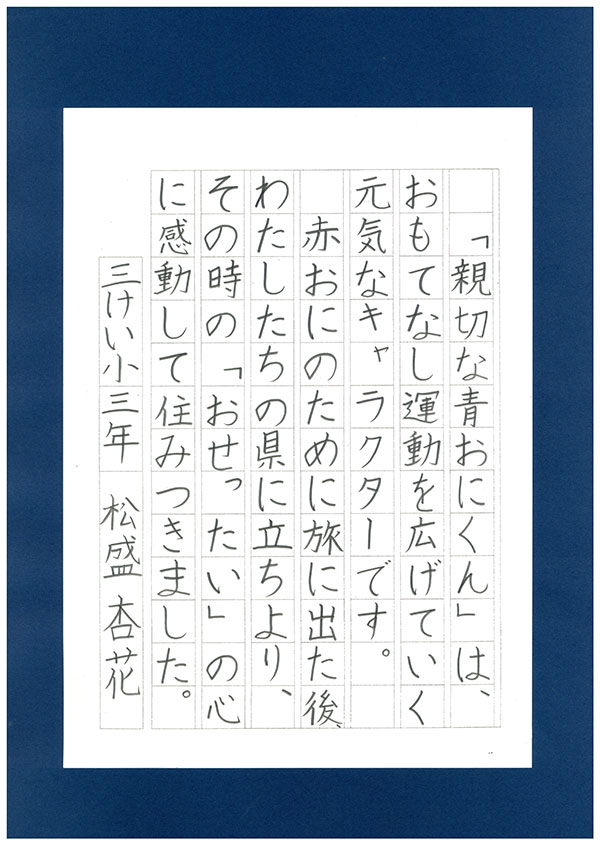 「親切な青おにくん」は、
おもてなし運動を広げていく
元気なキャラクターです。
赤おにのために旅に出た後、
わたしたちの県に立ちより、
その時の「おせったい」の心
に感動して住みつきました。
三けい小三年 松盛杏花